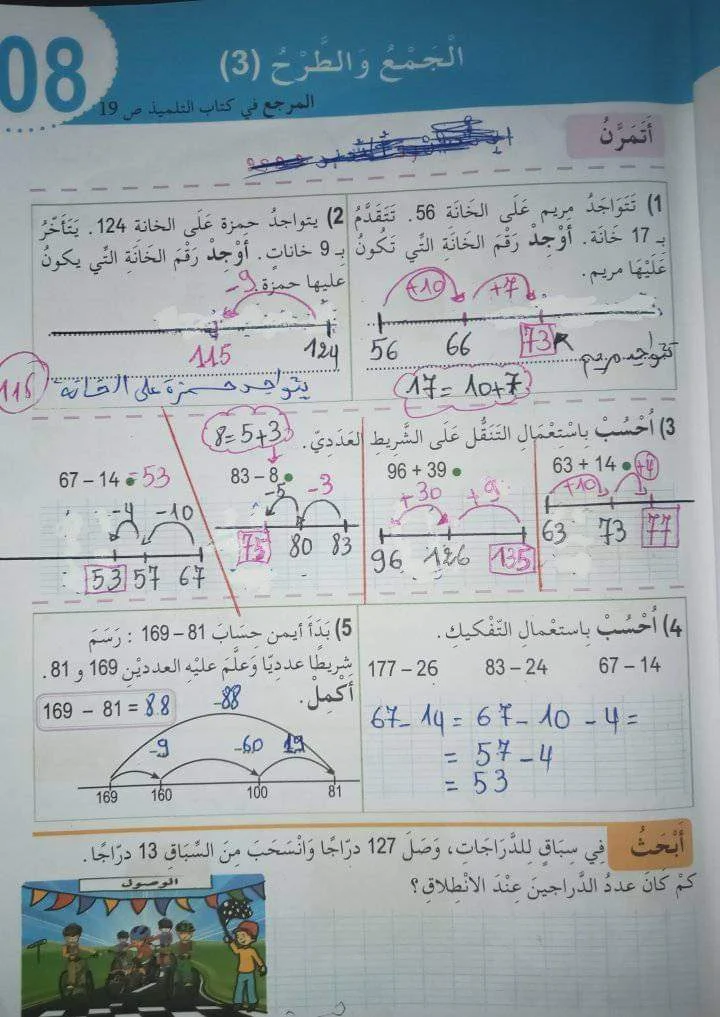 08
الْجَمْعُ وَالطَّرْحُ (3)
المرجع في كتاب التلميذ ص 19
أَتَمَرَّنُ
1) تَتَوَاجَدُ مريم عَلَى الخَانَة 56. تَتَقَدَّمُ
بِـ 17 خَانَة. أَوْجِدْ رَقْمَ الخَانَةِ التَّي تَكُونُ
عَلَيْهَا مريم.
+10 +7
56 66 73
تتواجد مريم
17 = 10+7
2) يتواجدُ حمزة عَلَى الخانة 124. يَتَأَخّرُ
بِـ 9 خاناتٍ. أَوْجِدْ رَقْمَ الخَانَةِ التَّي يكونُ
عليها حمزة.
-9
115 124
يتواجد حمزة على الخانة 115
3) اُحْسُبْ بِاسْتِعْمَالِ التَنَقُّل عَلَى الشَّريطِ العَدَديّ.
63 + 14
+10 +4
63 73 77
96 + 39
+30 +9
96 126 135
8=5+3
83 – 8
-5 -3
75 80 83
67 – 14 = 53
-4 -10
53 57 67
4) اُحْسُبْ باستعْمالِ التّفْكيكِ.
67 – 14 83 – 24 177 – 26
67-14 = 67-10-4=
= 57-4
= 53
5) بَدَأَ أيمن حِسَابَ 81 – 169 : رَسَمَ
شريطًا عدديًا وَعلَّمَ عليْهِ العدديْنِ 169 و 81.
أَكْمِلْ.
169 – 81 = 88
-88
-9 -60 19
169 160 100 81
أَبْحَثُ
فِي سِبَاقٍ لِلدَّرَاجَاتِ، وَصَلَ 127 درّاجًا وَانْسَحَبَ مِنَ السِّبَاقِ 13 درّاجًا.
كمْ كَانَ عددُ الدَّراجينَ عِنْدَ الانْطِلاقِ؟
الوصول